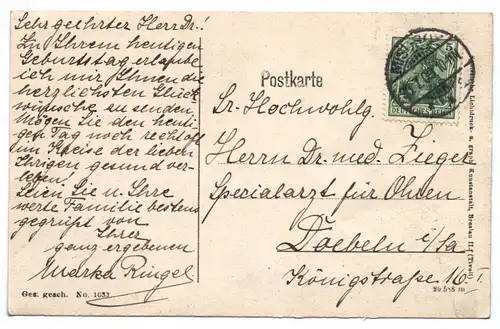 Sehr geehrter Herr Dr.!
Zu Ihrem heutigen
Geburtstag erlaube
ich mir Ihnen die
herzlichsten Glück-
wünsche zu senden.
Mögen Sie den heuti-
gen Tag noch recht oft
im Kreise der lieben
Ihrigen gesund ver-
leben!
Seien Sie u. Ihre
werte Familie bestens
gegrüßt von
Ihrer
ganz ergebenen
Marka Ringel
Ges. gesch. No. 1033
Postkarte
Sr. Hochwohlg.
Herrn Dr. med. Zieger
Spezialarzt für Ohren
Doebeln i/Sa
Königstraße 16 I.
DEUTSCHES REICH
Lichtdruck- u. graph. Kunstanstalt, Breslau II